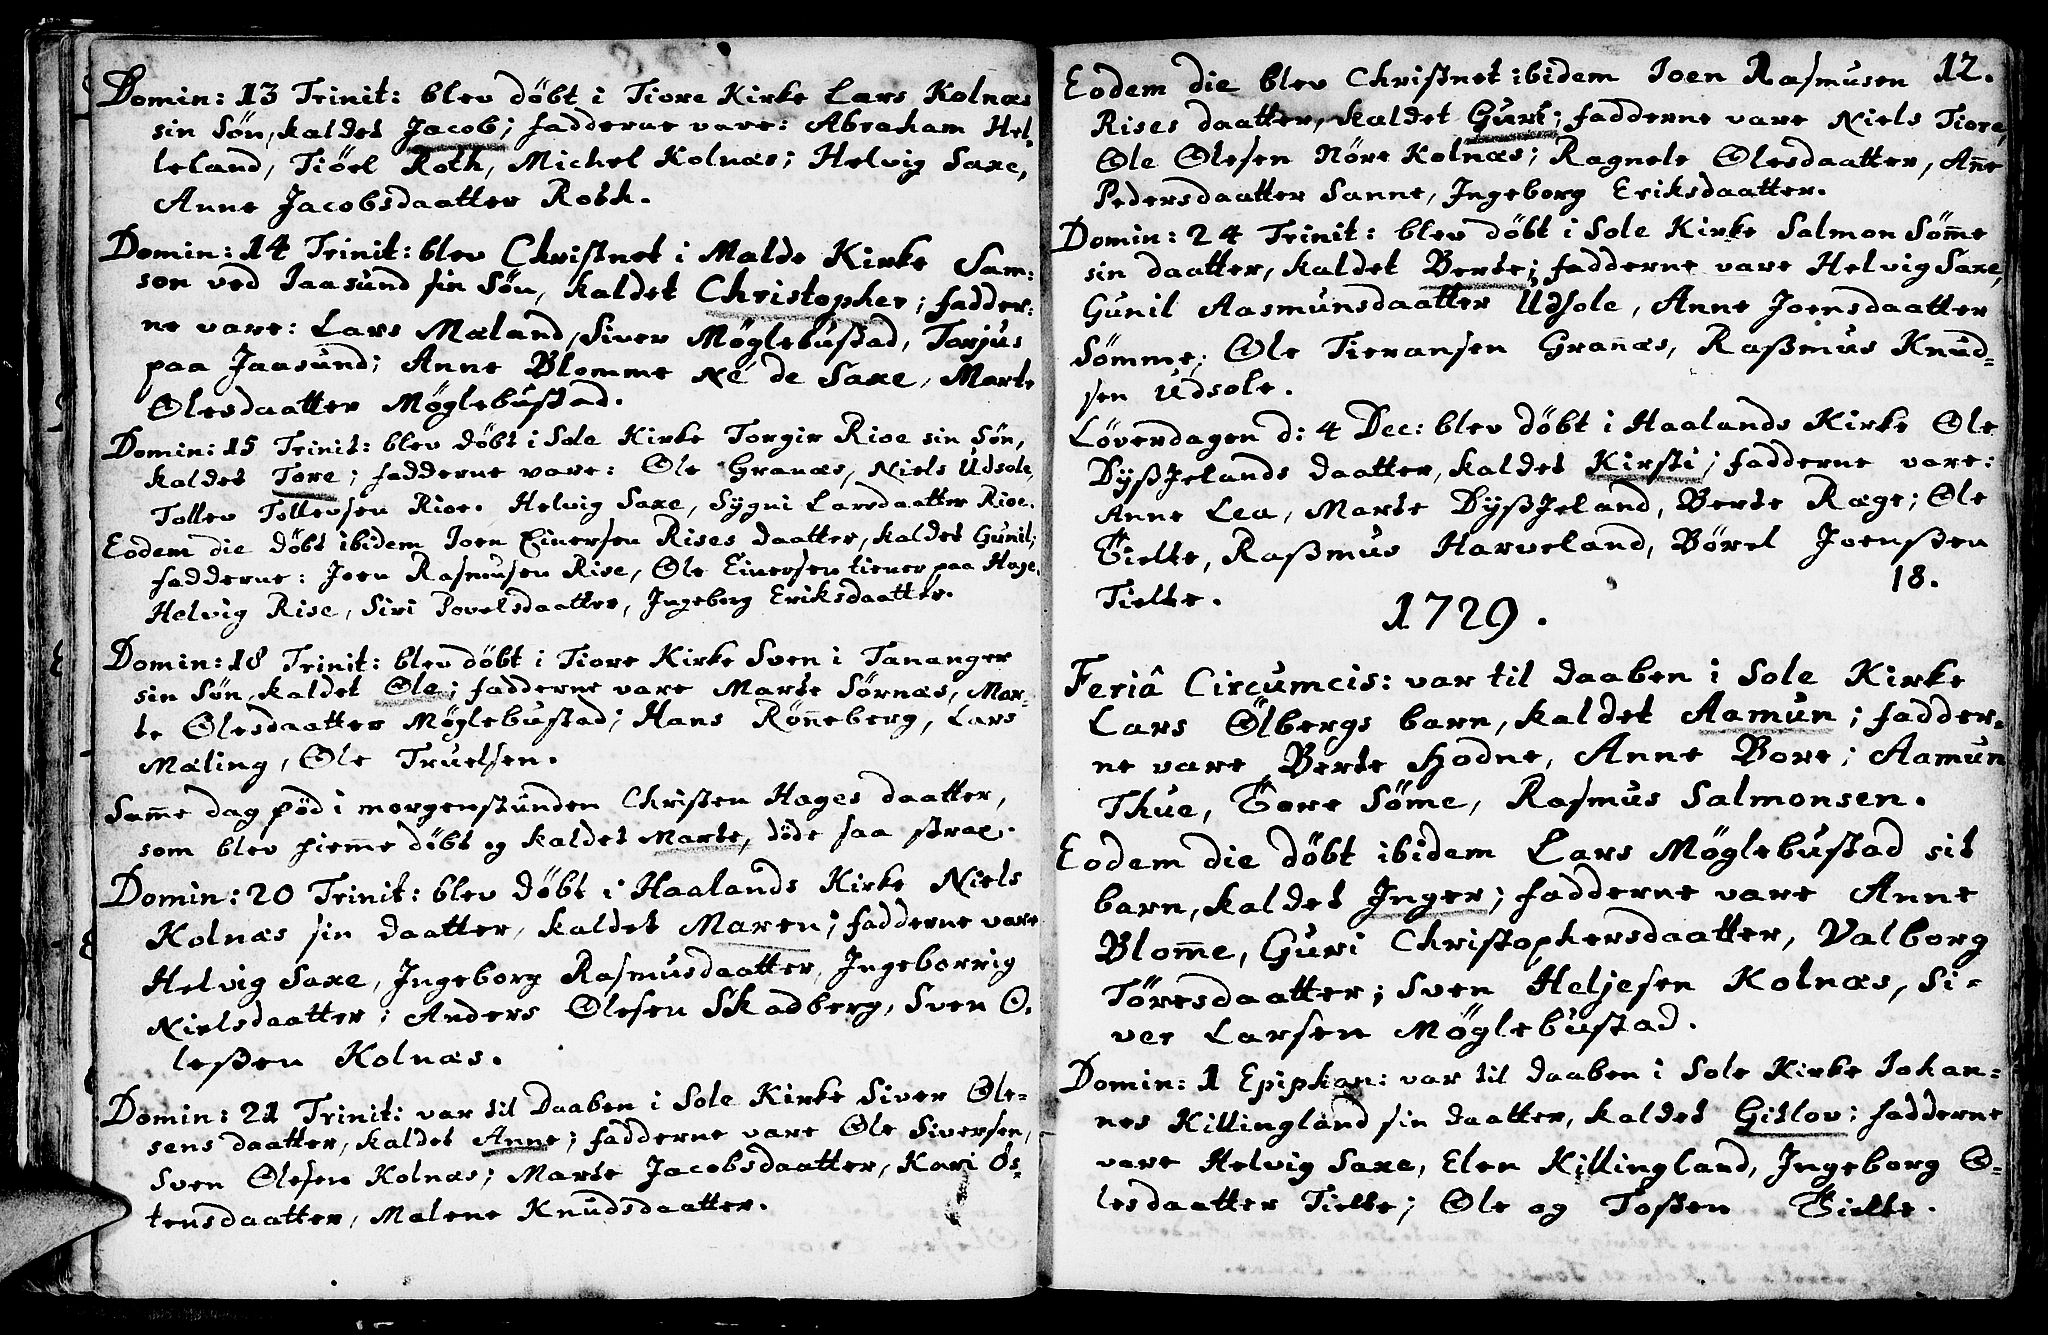 Domin: 13 Trinit: blev döbt i Tiore Kirke Lars Kolnæs
sin Sön, kaldet Jacob; fadderne vare: Abraham Hel,
leland, Tiöel Roth, Michel Kolnæs; Helvig Saxe,
Anne Jacobsdaatter Roth.
Domin: 14 Trinit: blev Christnet i Malde Kirke Sam:
son ved Jaasund sin Sön, kaldet Christopher; fadder:
ne vare: Lars Mæland, Siver Möglebustad, Torjus
paa Jaasund; Anne Blomme Né de Saxe, Marte
Olesdaatter Möglebustad.
Domin: 15 Trinit: blev döbt i Sole Kirke Torgir Rioe sin Sön,
kaldet Tore; fadderne vare: Ole Granæs, Niels Udsole,
Tollev Tollevsen Rioe. Helvig Saxe, Sygni Larsdaatter Rioe.
Eodem die döbt ibidem Joen Einersen Rises daatter, kaldet Gunil;
fadderne: Joen Rasmusen Rise, Ole Einersen tiener paa Hage,
Helvig Rise, Siri Povelsdaatter, Ingeborg Eriksdaatter.
Domin: 18 Trinit: blev döbt i Tiore Kirke Sven i Tananger
sin Sön, kaldet Ole; fadderne vare Marte Sörnæs, Mar-
te Olesdaatter Möglebustad; Hans Rönneberg, Lars
Mæling, Ole Truelsen.
Samme dag föd i morgenstunden Christen Hages daatter,
som blev hiemme döbt og kaldet Marte, döde saa strax.
Domin: 20 Trinit: blev döbt i Haalands Kirke Niels
Kolnæs sin daatter, kaldet Maren; fadderne vare
Helvig Saxe, Ingeborg Rasmusdaatter, Ingeborrig
Nielsdaatter; Anders Olesen Skadberg, Sven O.
leßen Kolnæs.
Domin: 21 Trinit: var til Daaben i Sole Kirke Siver Ole-
sens daatter, kaldet Anne; fadderne vare Ole Siversen,
Sven Olesen Kolnæs; Marte Jacobsdaatter, Kari Ös-
tensdaatter, Malene Knudsdaatter.
12.
Eodem die blev Christnet ibidem Joen Rasmusen
Rises daatter, kaldet Guri; fadderne vare Niels Tiore,
Ole Olesen Nöre Kolnæs; Ragnele Olesdaatter, Anne
Pedersdaatter Sanne, Ingeborg Eriksdaatter.
Domin: 24 Trinit: blev döbt i Sole Kirke Salmon Sömme
sin daatter, kaldet Berte; fadderne vare Helvig Saxe,
Gunil Aasmunsdaatter Udsole, Anne Joensdaatter
Sömme; Ole Tieransen Granæs, Raßmus Knud-
sen Udsole.
Löverdagen d: 4 Dec: blev döbt i Haalands Kirke Ole
Dyßjelands daatter, kaldet Kirsti; fadderne vare:
Anne Lea, Marte Dyßjeland, Berte Ræge; Ole
Tielte, Raßmus Harveland, Börel Joenßen
Tielte.
18.
1729.
Feriâ Circumcis: var til daaben i Sole Kirke
Lars Ölbergs barn, kaldet Aamun; fadder-
ne vare Berte Hodne, Anne Bore; Aamun
Thue, Tore Söme, Rasmus Salmonsen.
Eodem die döbt ibidem Lars Möglebustad sit
barn, kaldet Inger; fadderne vare Anne
Blomme, Guri Christophersdaatter, Valborg
Töresdaatter; Sven Heljesen Kolnæs, Si-
ver Larsen Möglebustad.
Domin: 1 Epiphan: var til daaben i Sole Kirke Johan-
nes Killingland sin daatter, kaldet Gitlov; fadderne
vare Helvig Saxe, Elen Killingland, Ingeborg O-
lesdaatter Tielte; Ole og Toßen Tielte.